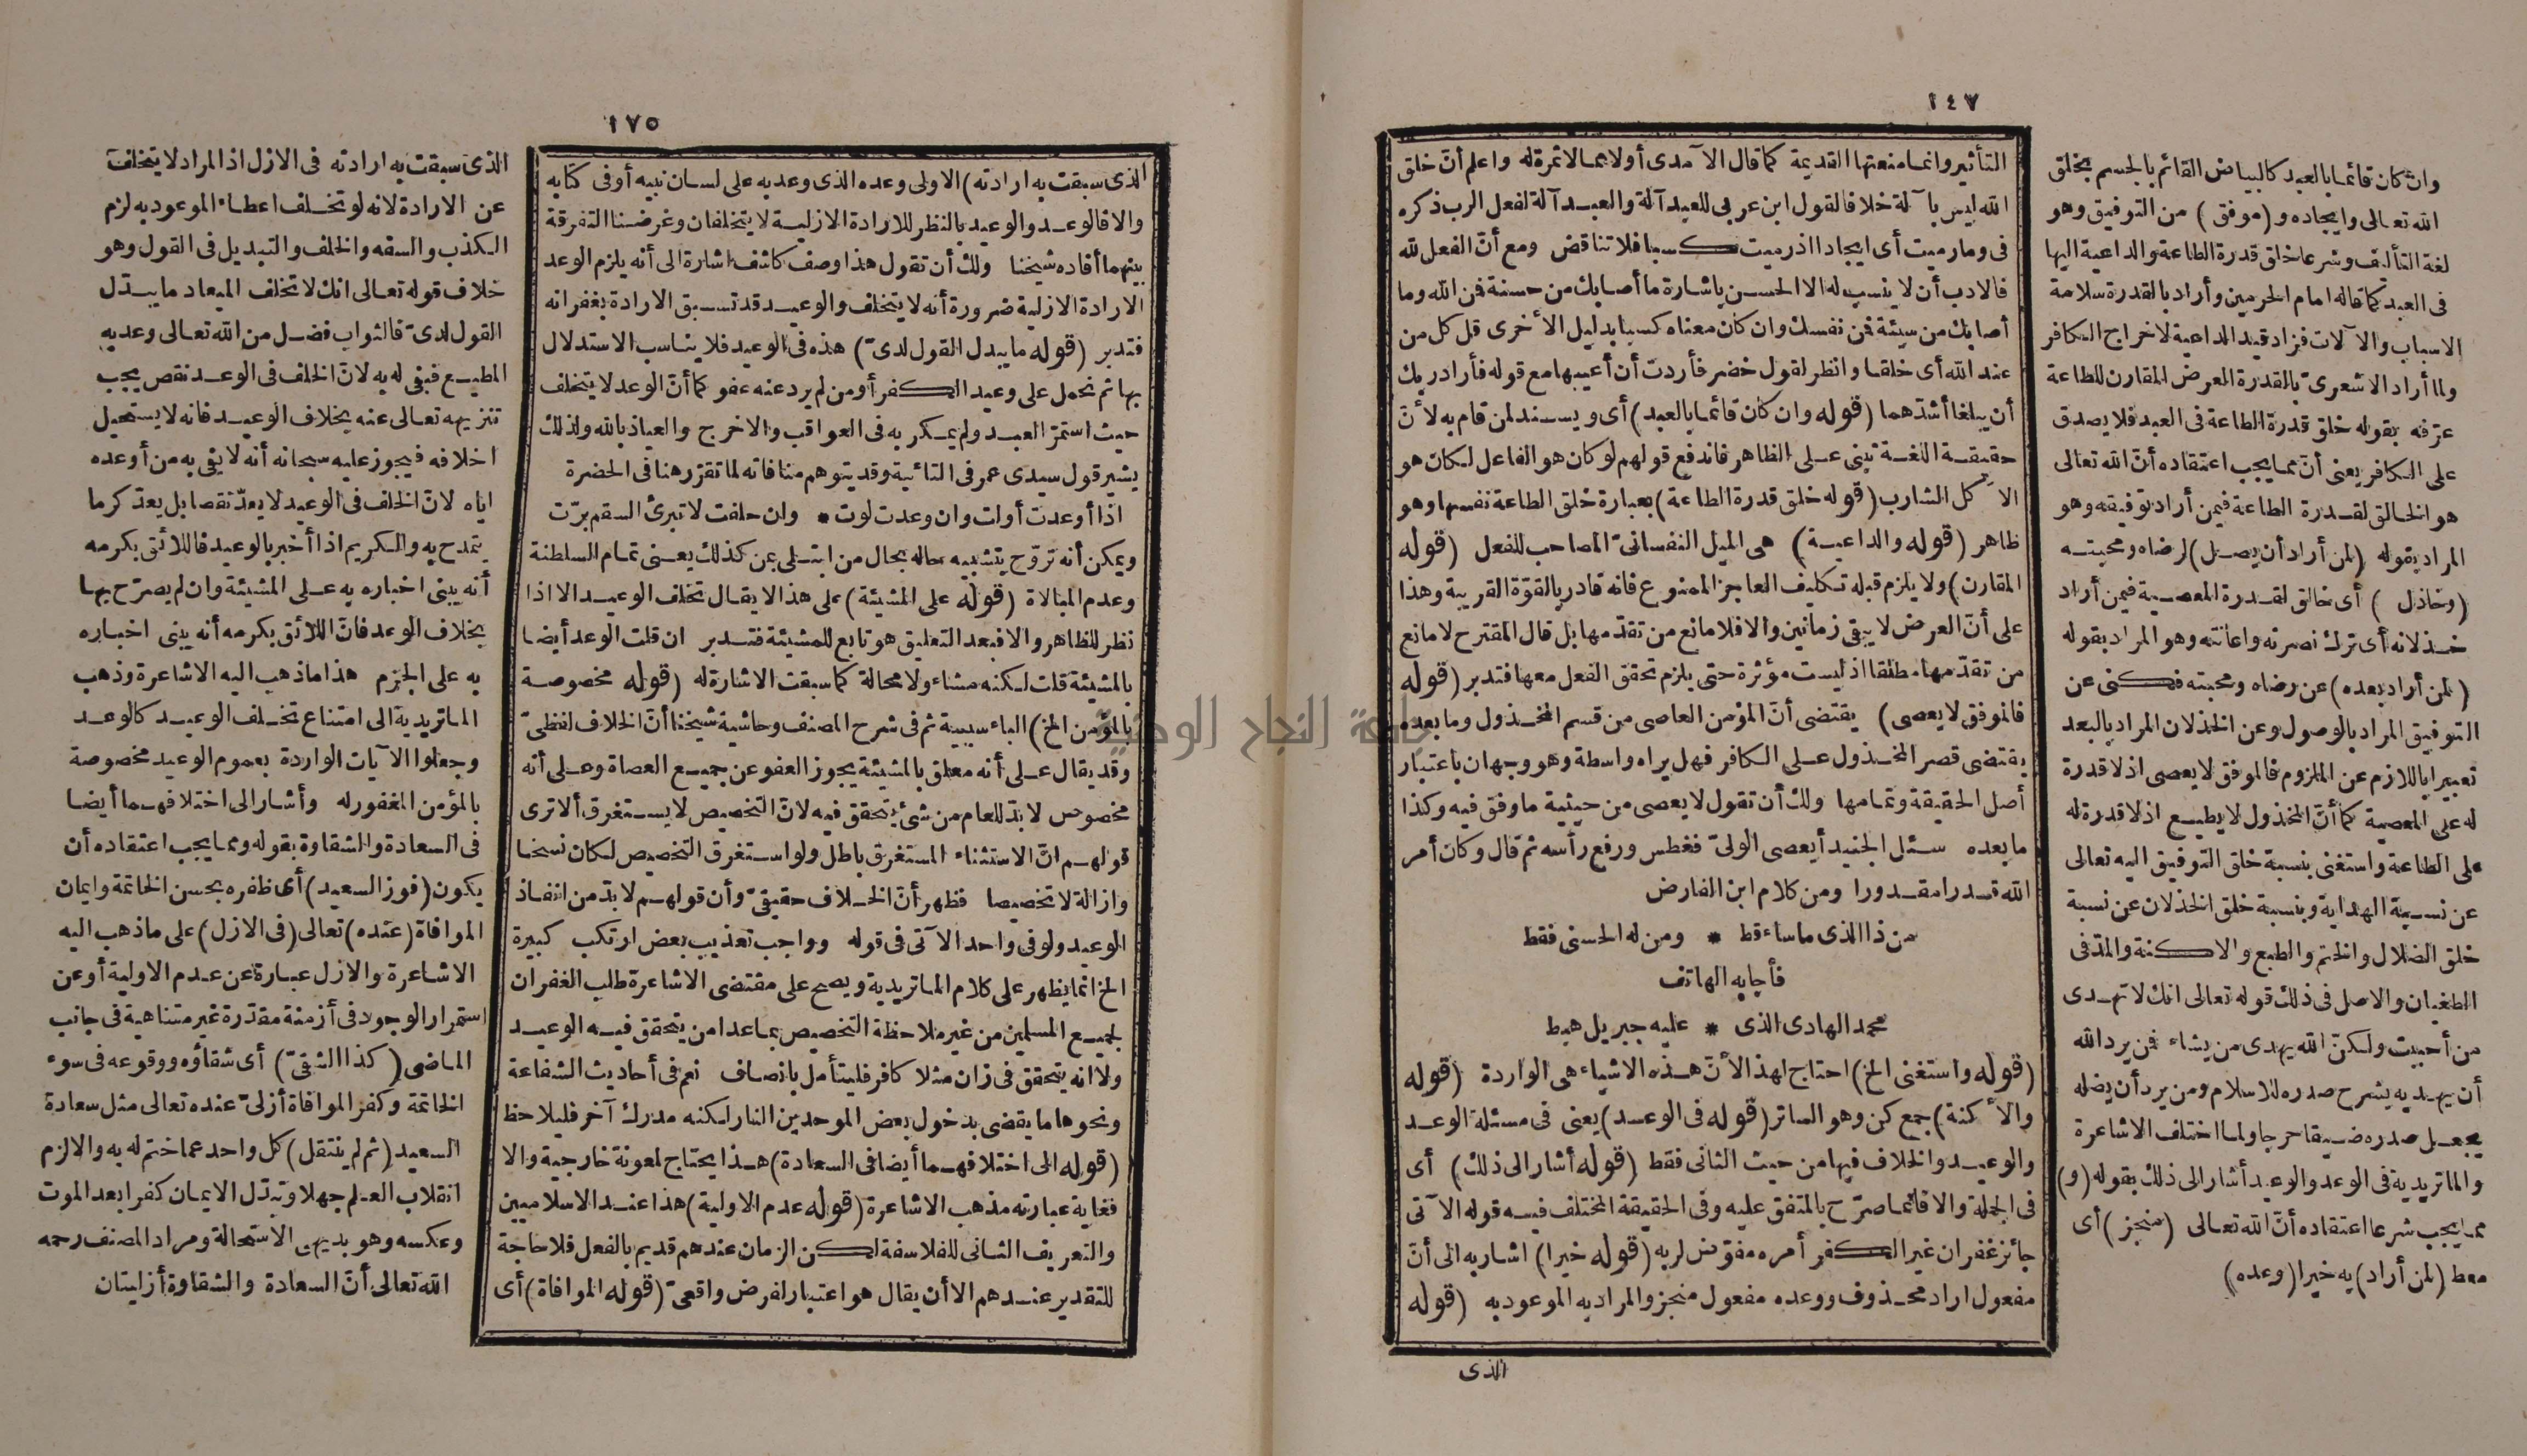 ١٤٧
التأثير وانما منعتها القديمة كما قال الآمدى أولا بمالا ثمرة له واعلم أن خلق
الله ليس بآلة خلافا لقول ابن عربى للعبد آلة والعبد آلة لفعل الرب ذكره
فى وما رميت أى ايجادا اذ رميت كسبا فلا تناقض ومع أن الفعل لله
فالادب أن لا ينسب له الا الحسن باشارة ما أصابك من حسنة فمن الله وما
أصابك من سيئة فمن نفسك وان كان معناه كسبا بدليل الأخرى قل كل من
عند الله أى خلقا وانظر لقول خضر فأردت أن أعيبها مع قوله فأراد ربك
أن يبلغا أشدّهما (قوله وان كان قائما بالعبد) أى ويسند لمن قام به لأنّ
حقيقة اللغة تبنى على الظاهر فاندفع قولهم لو كان هو الفاعل لكان هو
الآكل الشارب (قوله خلق قدرة الطاعة) بعبارة خلق الطاعة نفسها وهو
ظاهر (قوله والداعية) هى الميل النفسانىّ المصاحب للفعل (قوله
المقارن) ولا يلزم قبله تكليف العاجز الممنوع فانه قادر بالقوّة القريبة وهذا
على أنّ العرض لا يبقى زمانين والا فلا مانع من تقدّمها بل قال المقترح لا مانع
من تقدّمها مطلقا اذ ليست مؤثرة حتى يلزم تحقق الفعل معها فتدبر (قوله
فالموفق لا يعصى) يقتضى أنّ المؤمن العاصى من قسم المخذول وما بعده
يقتضى قصر المخذول على الكافر فهل يراه واسطة وهو وجهان باعتبار
أصل الحقيقة وتمامها ولك أن تقول لا يعصى من حيثية ما وفق فيه وكذا
ما بعده سئل الجنيد أيعصى الولىّ فغطس ورفع رأسه ثم قال وكان أمر
الله قدرا مقدورا ومن كلام ابن الفارض
من ذا الذى ما ساء قط * ومن له الحسنى فقط
فأجابه الهاتف
محمد الهادى الذى * عليه جبريل هبط
(قوله واستغنى الخ) احتاج لهذا لأنّ هذه الاشياء هى الواردة (قوله
والأكنة) جمع كن وهو الساتر (قوله فى الوعد) يعنى فى مسئلة الوعد
والوعيد والخلاف فيها من حيث الثانى فقط (قوله أشار الى ذلك) أى
فى الجملة والا فانما صرّح بالمتفق عليه وفى الحقيقة المختلف فيه قوله الآتى
جائز غفران غير الكفر أمره مفوّض لربه (قوله خيرا) اشار به الى أنّ
مفعول اراد محذوف ووعده مفعول منجز والمراد به الموعود به (قوله
الذى
وان كان قائما بالعبد كالبياض القائم بالجسم بخلق
الله تعالى وايجاده و(موفق) من التوفيق وهو
لغة التأليف وشرعا خلق قدرة الطاعة والداعية اليها
فى العبد كما قاله امام الحرمين وأراد بالقدرة سلامة
الاسباب والآلات فزاد قيد الداعية لاخراج الكافر
ولما أراد الاشعرىّ بالقدرة العرض المقارن للطاعة
عرّفه بقوله خلق قدرة الطاعة فى العبد فلا يصدق
على الكافر يعنى أنّ مما يجب اعتقاده أنّ الله تعالى
هو الخالق لقدرة الطاعة فيمن أراد توفيقه وهو
المراد بقوله (لمن أراد أن يصل) لرضاه ومحبته
(وخاذل) أى خالق لقدرة المعصية فيمن أراد
خذلانه أى ترك نصرته واعانته وهو المراد بقوله
(لمن أراد بعده) عن رضاه ومحبته فكنى عن
التوفيق المراد بالوصول وعن الخذلان المراد بالبعد
تعبيرا باللازم عن الملزوم فالموفق لا يعصى اذ لا قدرة
له على المعصية كما أنّ المخذول لا يطيع اذ لا قدرة له
على الطاعة واستغنى بنسبة خلق التوفيق اليه تعالى
عن نسبة الهداية وبنسبة خلق الخذلان عن نسبة
خلق الضلال والختم والطبع والاكنة والمدّ فى
الطغيان والاصل فى ذلك قوله تعالى انك لا تهدى
من أحببت ولكنّ الله يهدى من يشاء فمن يرد الله
أن يهديه يشرح صدره للاسلام ومن يرد أن يضله
يجعل صدره ضيقا حرجا ولما اختلف الاشاعرة
والماتريدية فى الوعد والوعيد أشار الى ذلك بقوله (و)
مما يجب شرعا اعتقاده أنّ الله تعالى (منجز) أى
معط (لمن أراد) به خيرا (وعده)
١٧٥
الذى سبقت به ارادته) الاولى وعده الذى وعد به على لسان نبيه أو فى كتابه
والا فالوعد والوعيد بالنظر للارادة الازلية لا يتخلفان وغرضنا التفرقة
بينهما أفاده شيخنا ولك أن تقول هذا وصف كاشف اشارة الى أنه يلزم الوعد
الارادة الازلية ضرورة أنه لا يتخلف والوعيد قد تسبق الارادة بغفرانه
فتدبر (قوله ما يبدل القول لدىّ) هذه فى الوعيد فلا يناسب الاستدلال
بها ثم تحمل على وعيد الكفر أو من لم يرد عنه عفو كما أنّ الوعد لا يتخلف
حيث استمرّ العبد ولم يمكر به فى العواقب والاخرج والعياذ بالله ولذلك
يشير قول سيدى عمر فى التائية وقد يتوهم منافاته لما تقرّر هنا فى الحضرة
اذا أوعدت أوات وان وعدت لوت * وان حلفت لا تبرئ السقم برّت
ويمكن أنه تروّح بتشبيه حاله بحال من ابتلى بمن كذلك يعنى تمام السلطنة
وعدم المبالاة (قوله على المشيئة) على هذا لا يقال تخلف الوعيد الا اذا
نظر للظاهر والا فبعد التعليق هو تابع للمشيئة فتدبر ان قلت الوعد أيضا
بالمشيئة قلت لكنه مشاء ولا محالة كما سبقت الاشارة له (قوله مخصوصة
بالمؤمن الخ) الباء سببية ثم فى شرح المصنف وحاشية شيخنا أنّ الخلاف لفظىّ
وقد يقال على أنه معلق بالمشيئة يجوز العفو عن جميع العصاة وعلى أنه
مخصوص لا بدّ للعام من شئ يتحقق فيه لانّ التخصيص لا يستغرق ألا ترى
قولهم انّ الاستثناء المستغرق باطل ولو استغرق التخصيص لكان نسخا
وازالة لا تخصيصا فظهر أنّ الخلاف حقيقىّ وأن قولهم لا بدّ من انفاذ
الوعيد ولو فى واحد الآتى فى قوله وواجب تعذيب بعض ارتكب كبيرة
الخ انما يظهر على كلام الماتريدية ويصح على مقتضى الاشاعرة طلب الغفران
لجميع المسلمين من غير ملاحظة التخصيص بما عدا من يتحقق فيه الوعيد
ولا انه يتحقق فى زان مثلا كافر فليتأمل بانصاف نعم فى أحاديث الشفاعة
ونحوها ما يقضى بدخول بعض الموحدين النار لكنه مدرك آخر فليلاحظ
(قوله الى اختلافهما أيضا فى السعادة) هذا يحتاج لمعونة خارجية والا
فغاية عبارته مذهب الاشاعرة (قوله عدم الاولية) هذا عند الاسلاميين
والتعريف الثانى للفلاسفة لكن الزمان عندهم قديم بالفعل فلا حاجة
للتقدير عندهم الا أن يقال هو اعتبار لفرض واقعىّ (قوله الموافاة) أى
الذى سبقت به ارادته فى الازل اذ المراد لا يتخلف
عن الارادة لانه لو تخلف اعطاء الموعود به لزم
الكذب والسفه والخلف والتبديل فى القول وهو
خلاف قوله تعالى انك لا تخلف الميعاد ما يبدّل
القول لدىّ فالثواب فضل من الله تعالى وعد به
المطيع فيفى له به لانّ الخلف فى الوعد نقص يجب
تنزيهه تعالى عنه بخلاف الوعيد فانه لا يستحيل
اخلافه فيجوز عليه سبحانه أنه لا يفى به من أوعده
اياه لانّ الخلف فى الوعيد لا يعدّ نقصا بل يعدّ كرما
يتمدح به والكريم اذا أخبر بالوعيد فاللائق بكرمه
أنه يبنى اخباره به على المشيئة وان لم يصرّح بها
بخلاف الوعد فانّ اللائق بكرمه أنه يبنى اخباره
به على الجزم هذا ما ذهب اليه الاشاعرة وذهب
الماتريدية الى امتناع تخلف الوعيد كالوعد
وجعلوا الآيات الواردة بعموم الوعيد مخصوصة
بالمؤمن المغفور له وأشار الى اختلافهما أيضا
فى السعادة والشقاوة بقوله ومما يجب اعتقاده أن
يكون (فوز السعيد) أى ظفره بحسن الخاتمة وايمان
الموافاة (عنده) تعالى (فى الازل) على ما ذهب اليه
الاشاعرة والازل عبارة عن عدم الاولية أو عن
استمرار الوجود فى أزمنة مقدّرة غير متناهية فى جانب
الماضى (كذا الشقىّ) أى شقاؤه ووقوعه فى سوء
الخاتمة وكفر الموافاة أزلىّ عنده تعالى مثل سعادة
السعيد (ثم لم ينتقل) كل واحد عما ختم له به والا لزم
انقلاب العلم جهلا وتبدّل الايمان كفرا بعد الموت
وعكسه وهو بديهى الاستحالة ومراد المصنف رحمه
الله تعالى أنّ السعادة والشقاوة أزليتان
جامعة النجاح الوطنية